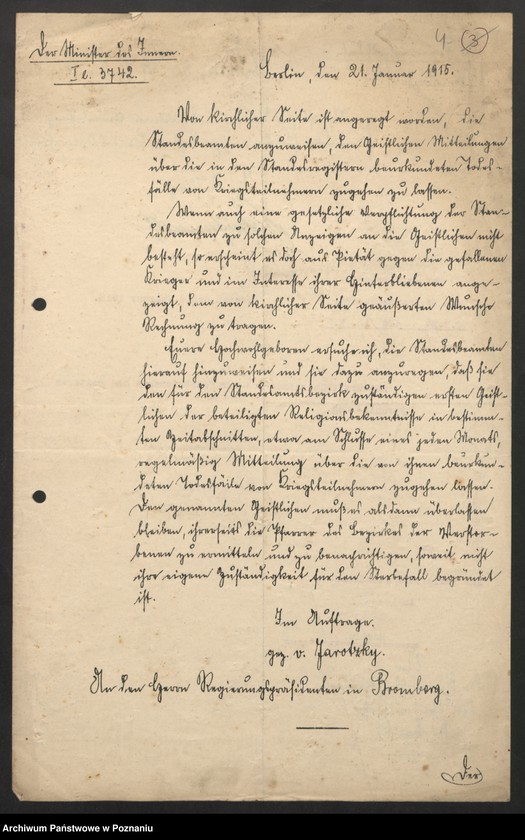 4 3
Der Minister des Innern.
I e. 3742.
Berlin, den 21. Januar 1915.
Von kirchlicher Seite ist angeregt worden, die
Standesbeamten anzuweisen, den Geistlichen Mitteilungen
über die in den Standesregistern beurkundeten Todes-
fälle von Kriegsteilnehmern zugehen zu lassen.
Wenn auch eine gesetzliche Verpflichtung der Stan-
desbeamten zu solchen Anzeigen an die Geistlichen nicht
besteht, so erscheint es doch aus Pietät gegen die gefallenen
Krieger und im Interesse ihrer Hinterbliebenen ange-
zeigt, dem von kirchlicher Seite geäußerten Wunsche
Rechnung zu tragen.
Euere Hochwohlgeboren ersuche ich, die Standesbeamten
hierauf hinzuweisen und sie dazu anzuregen, daß sie
den für den Standesamtsbezirk zuständigen ersten Geist-
lichen der beteiligten Religionsbekenntnisse in bestimm-
ten Zeitabschnitten, etwa am Schlusse eines jeden Monats,
regelmäßig Mitteilung über die von ihnen beurkun-
deten Todesfälle von Kriegsteilnehmern zugehen lassen.
Den genannten Geistlichen muß es alsdann überlassen
bleiben, ihrerseits die Pfarrer des Bezirkes der Verstor-
benen zu ermitteln und zu benachrichtigen, soweit nicht
ihre eigene Zuständigkeit für den Sterbefall begründet
ist.
Im Auftrage.
gez. v. Jarotzky.
An den Herrn Regierungspräsidenten in Bromberg.
Der
Archiwum Państwowe w Poznaniu